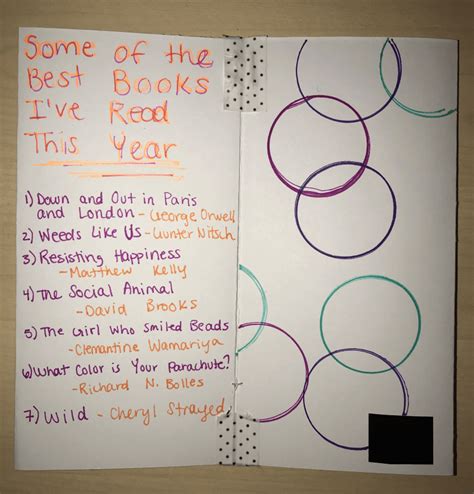 Some of the
Best Books
I've Read
This Year
1) Down and Out in Paris
and London - George Orwell
2) Weeds Like Us - Gunter Nitsch
3) Resisting Happiness
- Matthew Kelly
4) The Social Animal
- David Brooks
5) The Girl Who Smiled Beads
- Clemantine Wamariya
6) What Color is Your Parachute?
- Richard N. Bolles
7) Wild - Cheryl Strayed